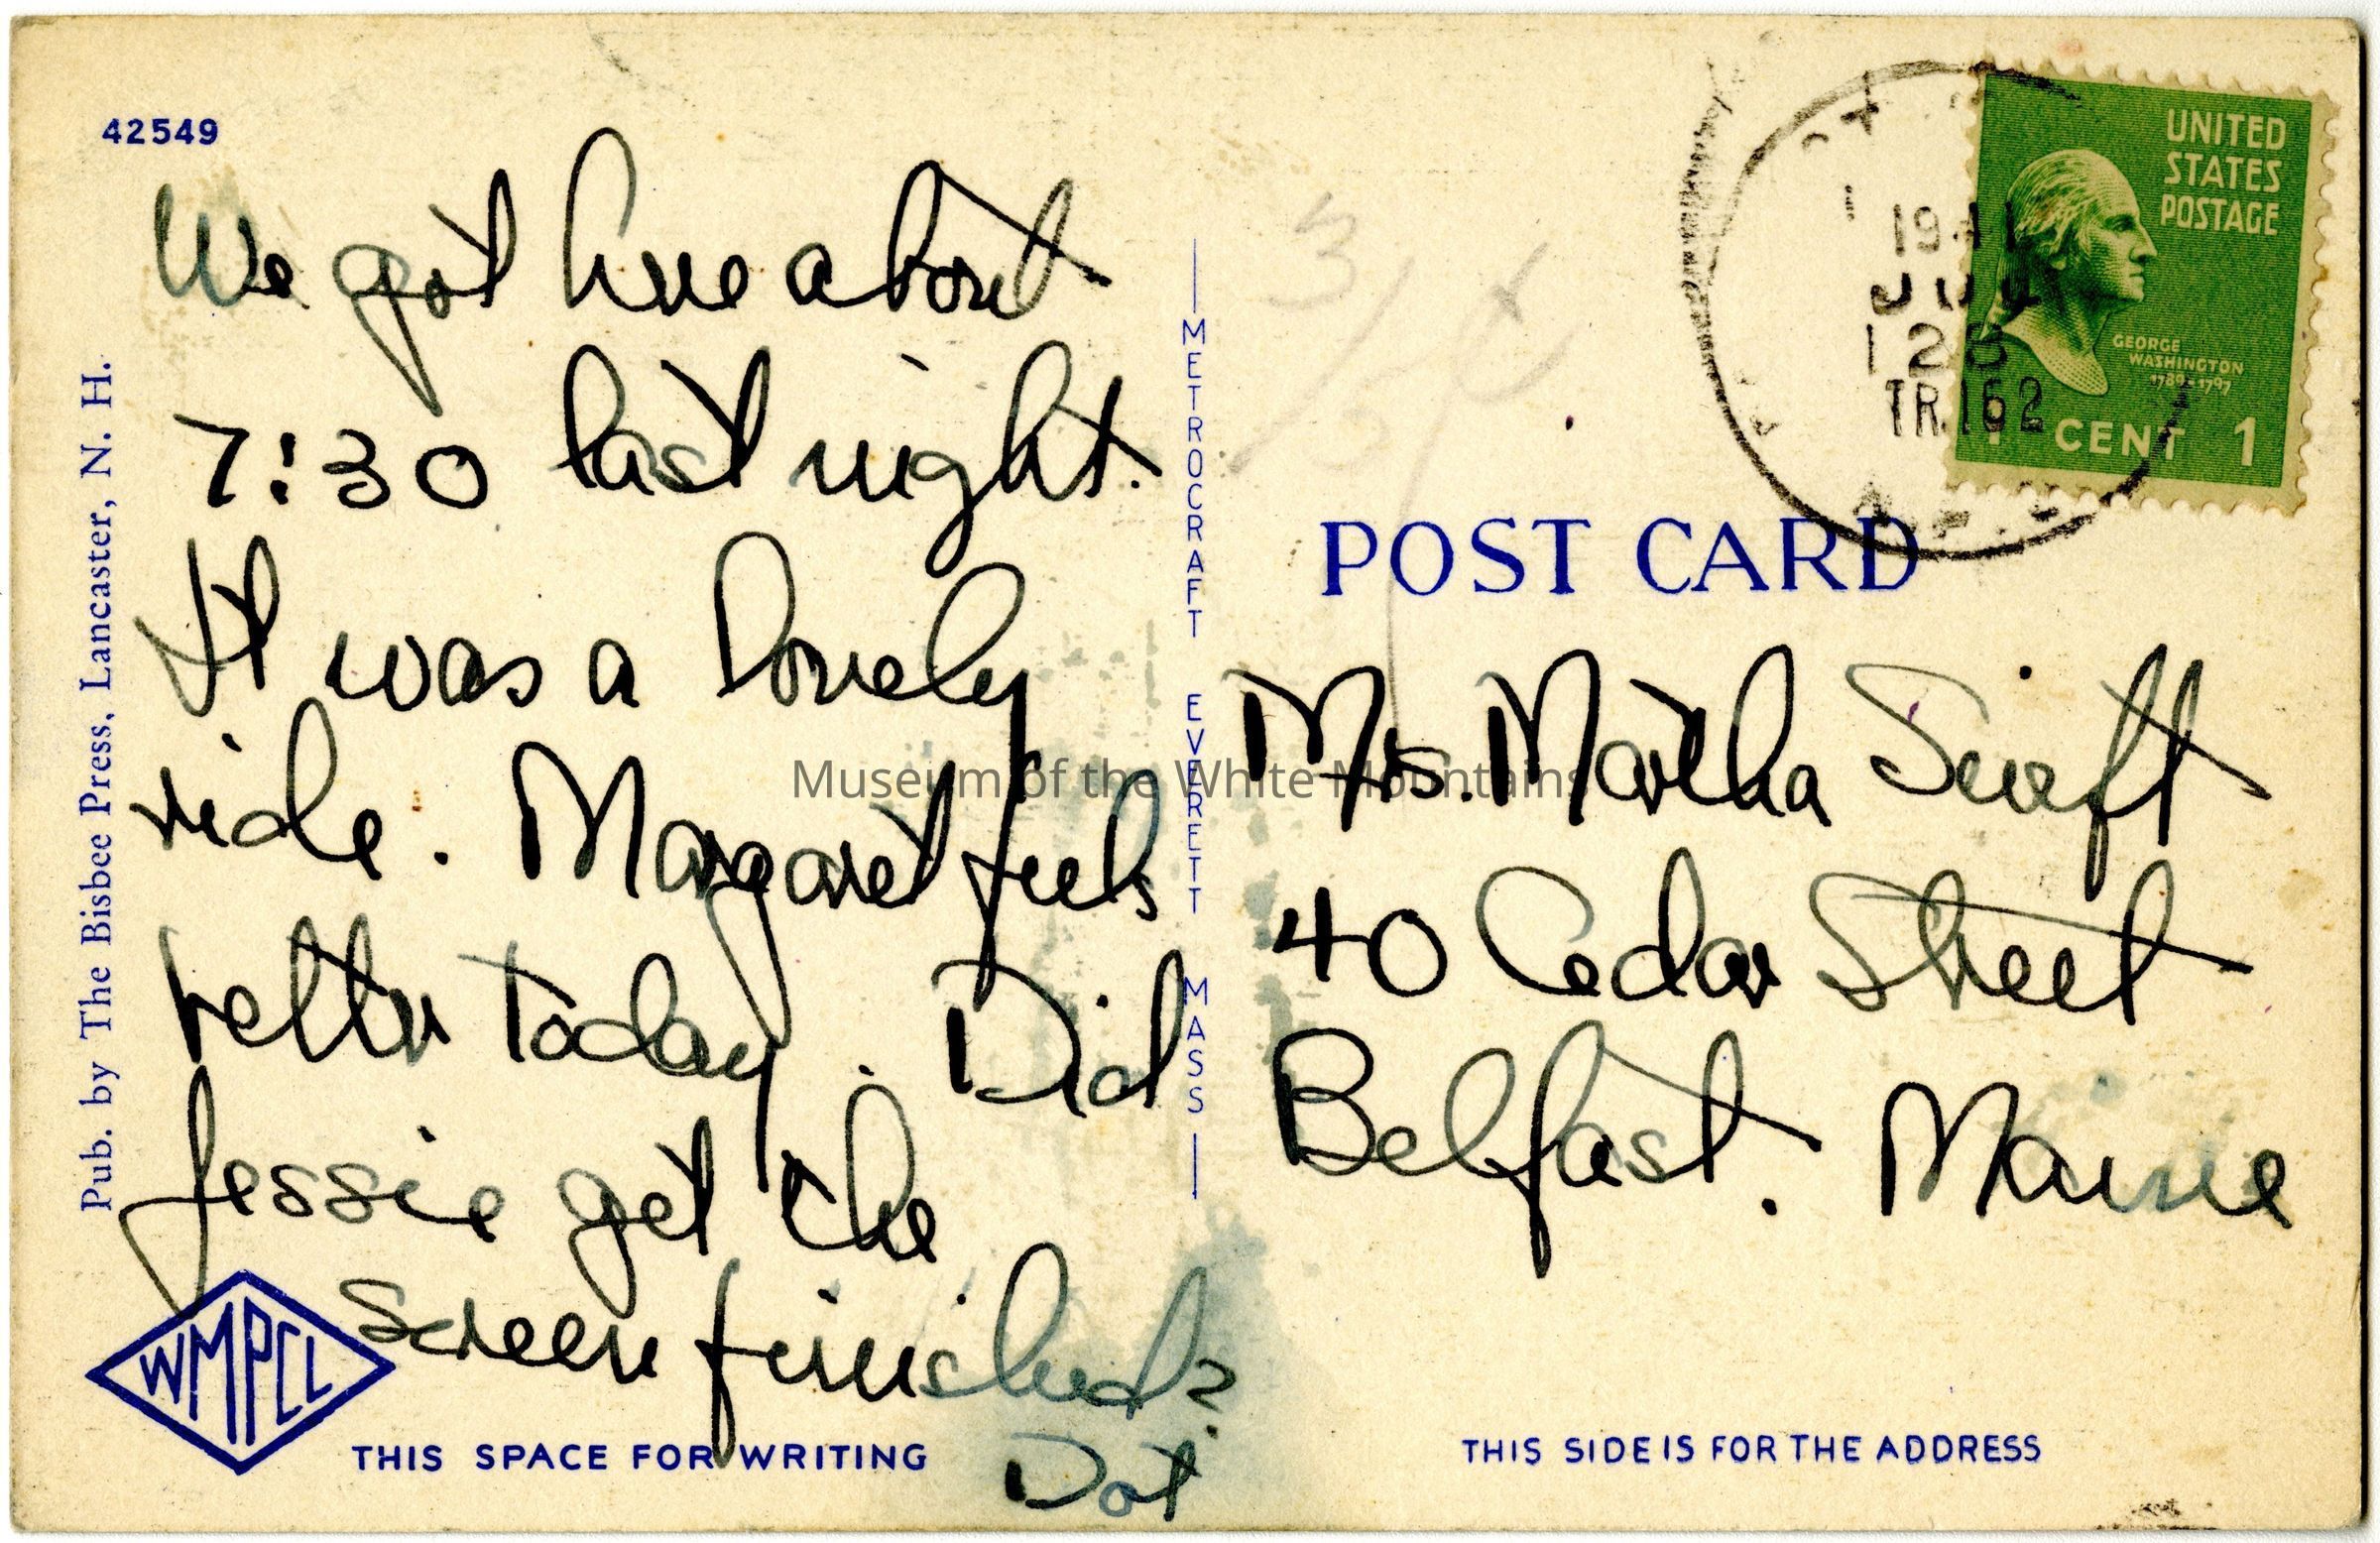 42549
We got here about
7:30 last night.
It was a lovely
ride. Margaret feels
better today. Did
Jessie get the
Screen finished?
Dot
Pub. by The Bisbee Press, Lancaster, N. H.
WMPCL
THIS SPACE FOR WRITING
METROCRAFT EVERETT MASS
UNITED
STATES
POSTAGE
GEORGE
WASHINGTON
1789-1797
1 CENT 1
1941
JUL
TR.162
POST CARD
Mrs. Martha Swift
40 Cedar Street
Belfast. Maine
THIS SIDE IS FOR THE ADDRESS
Museum of the White Mountains